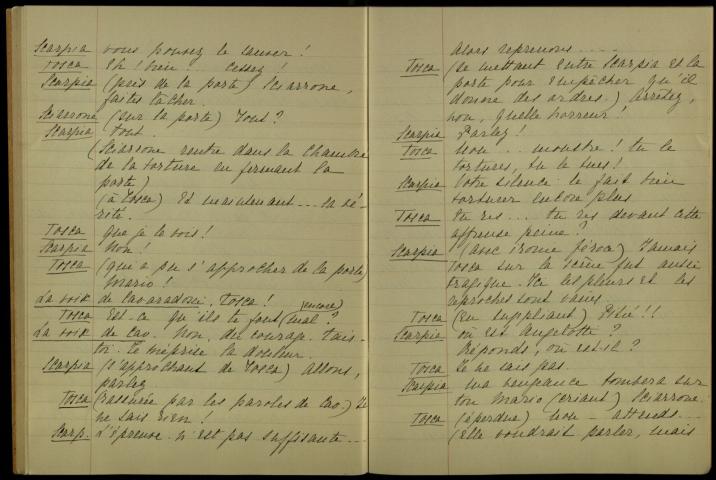 Scarpia vous pouvez le sauver !
Tosca Eh ! bien .. cessez !
Scarpia (près de la porte) Sciarrone,
faites lâcher.
Sciarrone (sur la porte) Tout ?
Scarpia Tout.
(Sciarrone rentre dans la chambre
de la torture en fermant la
porte)
(à Tosca) Et maintenant ... la vé-
rité.
Tosca Que je le vois !
Scarpia Non !
Tosca (qui a pu s'approcher de la porte)
Mario !
La voix de Cavaradossi, Tosca !
Tosca Est-ce qu'ils te font (encore) mal ?
La voix de Cav. Non, du courage. Tais-
toi. Je méprise la douleur.
Scarpia (s'approchant de Tosca) Allons,
parlez
Tosca (rassurée par les paroles de Cav.) Je
ne sais rien !
Scarp. L'épreuve n'est pas suffisante ...
Alors reprenons .....
Tosca (se mettant entre Scarpia et la
porte pour empêcher qu'il
donne des ordres.) Arrêtez,
non, quelle horreur !
Scarpia Parlez !
Tosca Non ... monstre ! tu le
tortures, tu le tues !
Scarpia Votre silence le fait bien
torturer encor plus
Tosca Tu ris ... tu ris devant cette
affreuse peine ?
Scarpia (avec ironie féroce) Jamais
Tosca sur la scène fut aussi
tragique. Ici les pleurs et les
reproches sont vains
Tosca (en suppliant) Pitié !!
Scarpia où est Angelotti ?
Réponds, où est-il ?
Tosca Je ne sais pas.
Scarpia ma vengeance tombera sur
ton Mario (criant) Sciarrone.
Tosca (éperdue) Non - attends...
(elle voudrait parler, mais